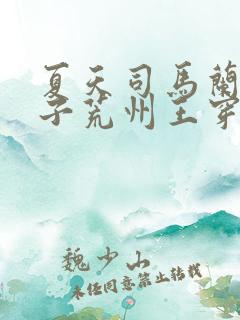 夏天司馬蘭
子荒州王穿
魏少山
未经同意禁止转载